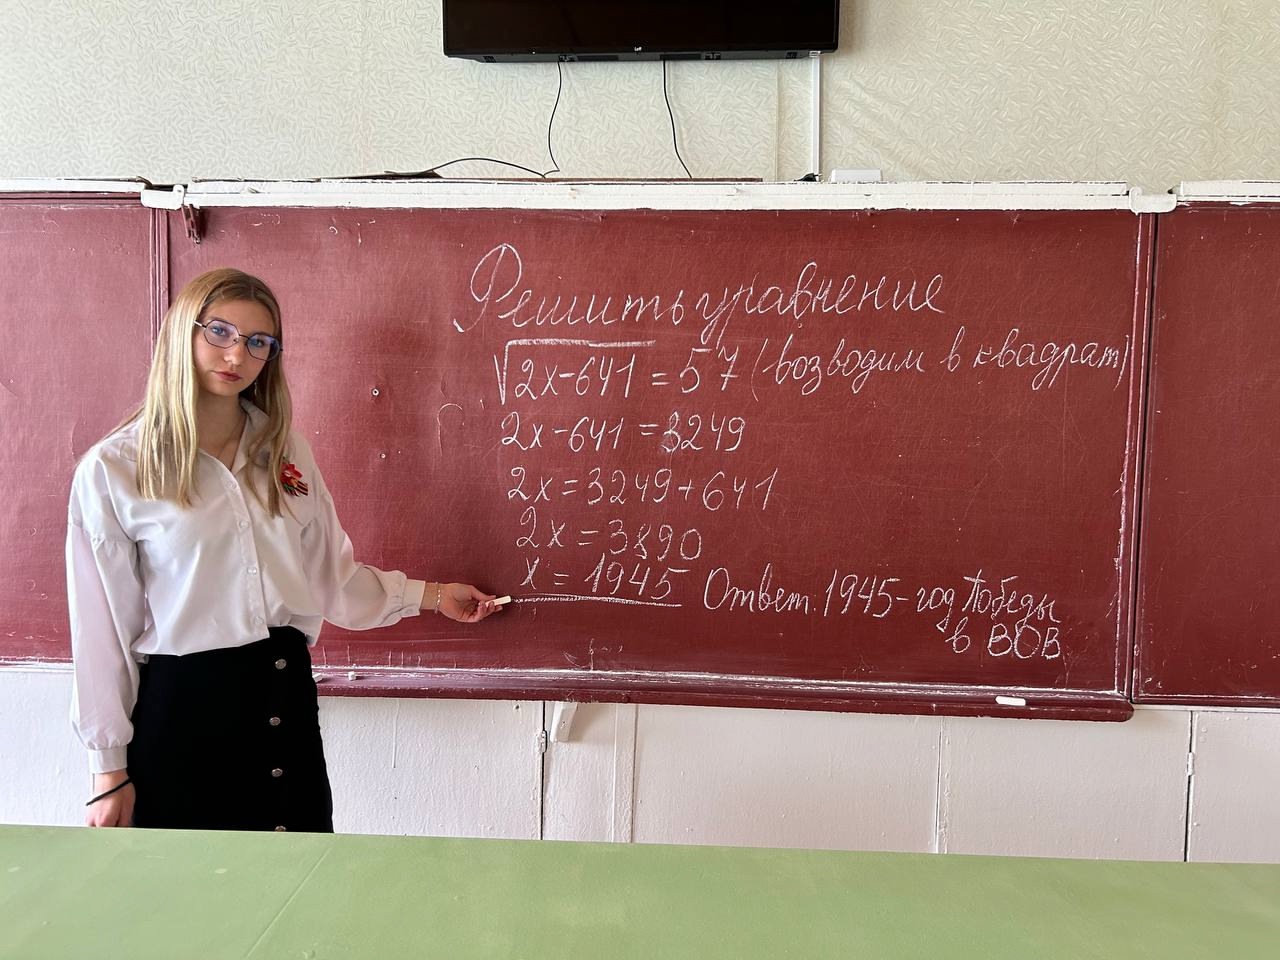 Решить уравнение
√2x-641 = 57 (возводим в квадрат)
2x-641 = 3249
2x = 3249+641
2x = 3890
x = 1945
Ответ: 1945-год Победы
в ВОВ